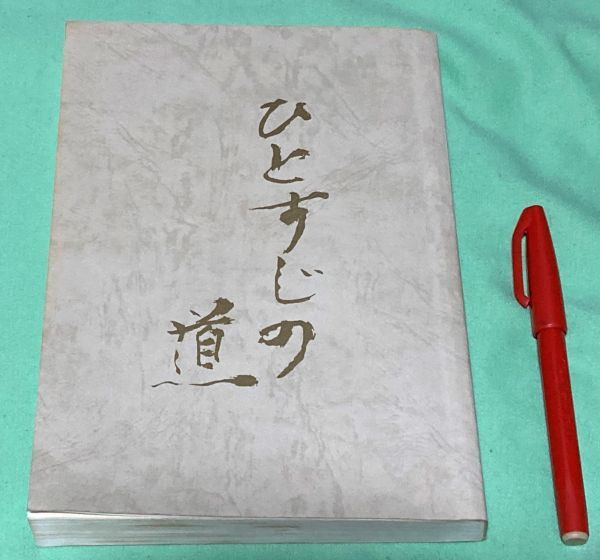 ひとすじの
道